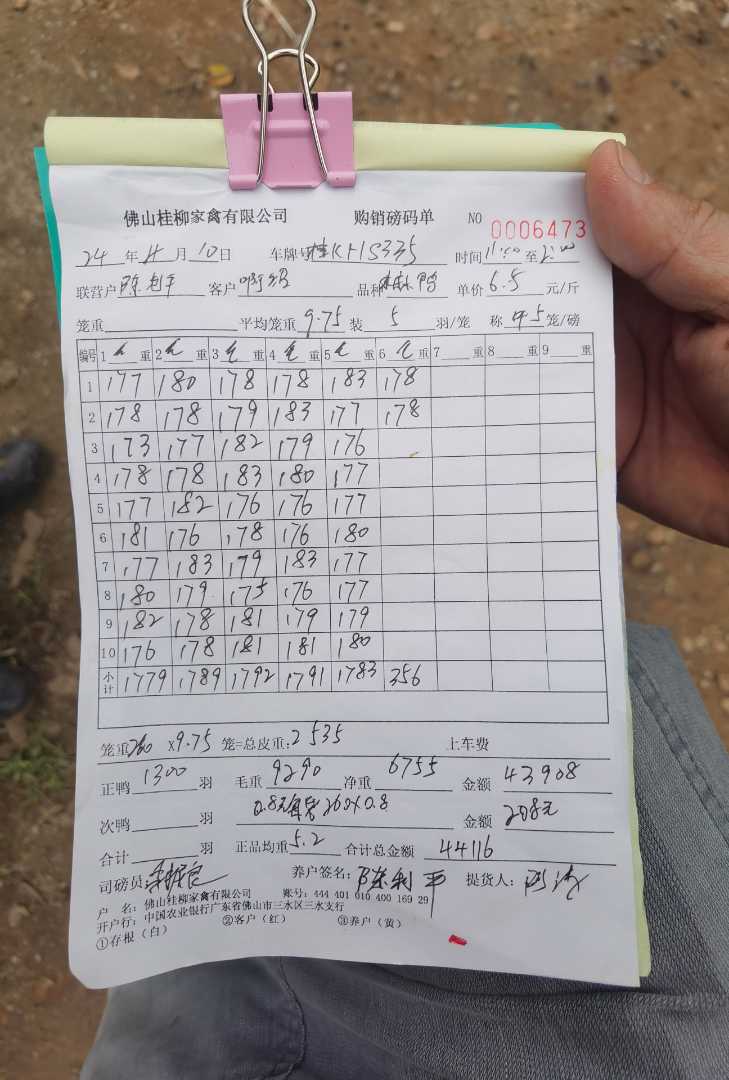 佛山桂柳家禽有限公司 购销磅码单 NO 0006473
24 年 4 月 10 日 车牌号 桂KH1S335 时间 11:00 至 2:00
联营户 陈利平 客户 品种 单价 6.5 元/斤
笼重 平均笼重 9.75 装 5 羽/笼 称 5 笼/磅
编号 1 重 2 重 3 重 4 重 5 重 6 重 7 重 8 重 9 重
1 177 180 178 178 183 178
2 178 178 179 183 177 178
3 173 177 182 179 176
4 178 178 183 180 177
5 177 182 176 176 177
6 181 176 178 176 180
7 177 183 179 183 177
8 180 179 175 176 177
9 182 178 181 179 179
10 176 178 181 181 180
小计 1779 1789 1792 1791 1783 356
笼重 260 X9.75 笼=总皮重: 2535 上车费
正鸭 1300 羽 毛重 9290 净重 6755 金额 43908
次鸭 羽 0.8元每笼 260X0.8 金额 208元
合计 羽 正品均重 5.2 合计总金额 44116
司磅员 养户签名: 陈利平 提货人:
户 名: 佛山桂柳家禽有限公司 账号: 444 401 010 400 169 29
开户行: 中国农业银行广东省佛山市三水区三水支行
①存根(白) ②客户(红) ③养户(黄)